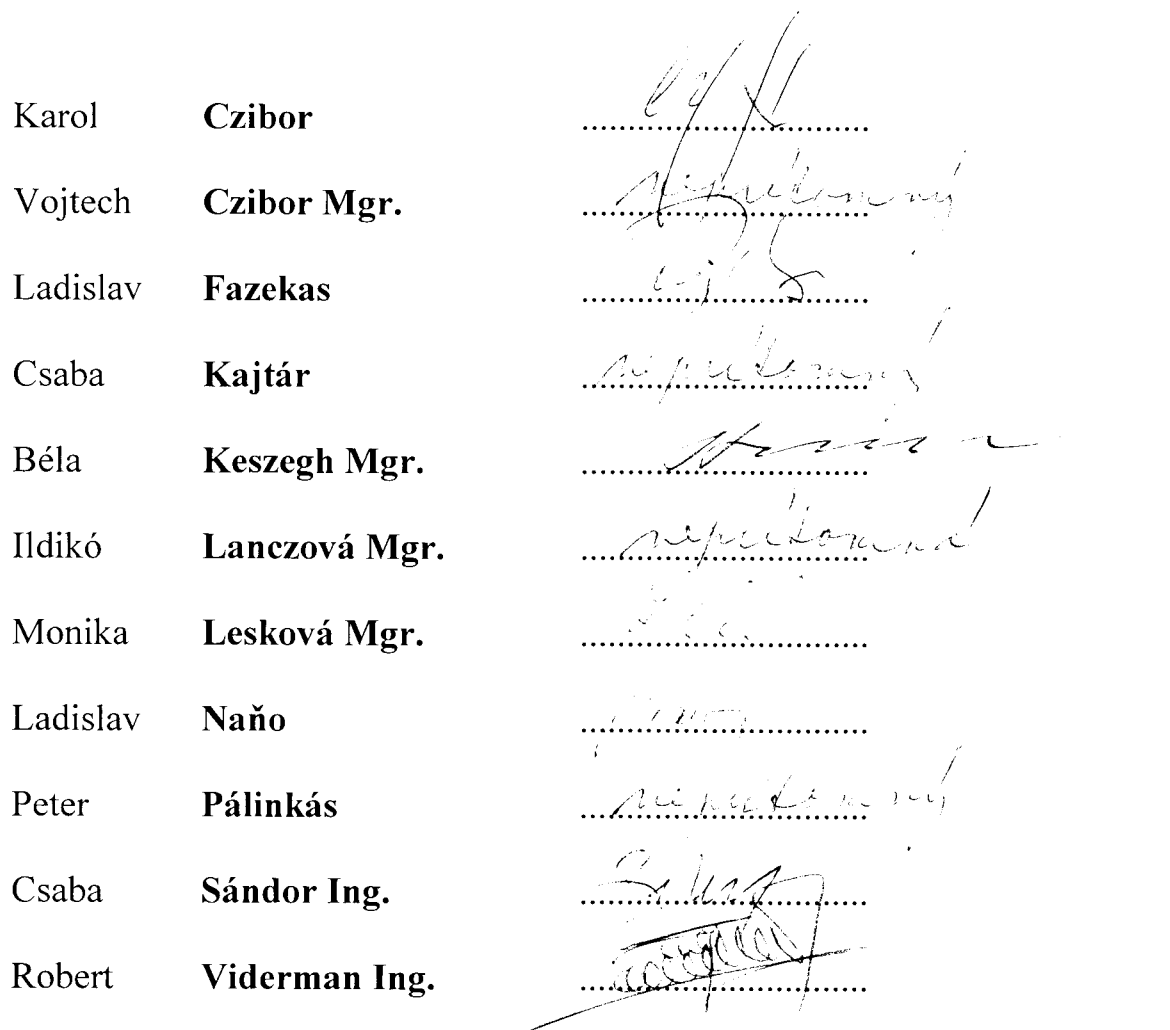 Karol Czibor
Vojtech Czibor Mgr. neprítomný
Ladislav Fazekas
Csaba Kajtár neprítomný
Béla Keszegh Mgr.
Ildikó Lanczová Mgr. neprítomná
Monika Lesková Mgr.
Ladislav Naňo
Peter Pálinkás neprítomný
Csaba Sándor Ing.
Robert Viderman Ing.